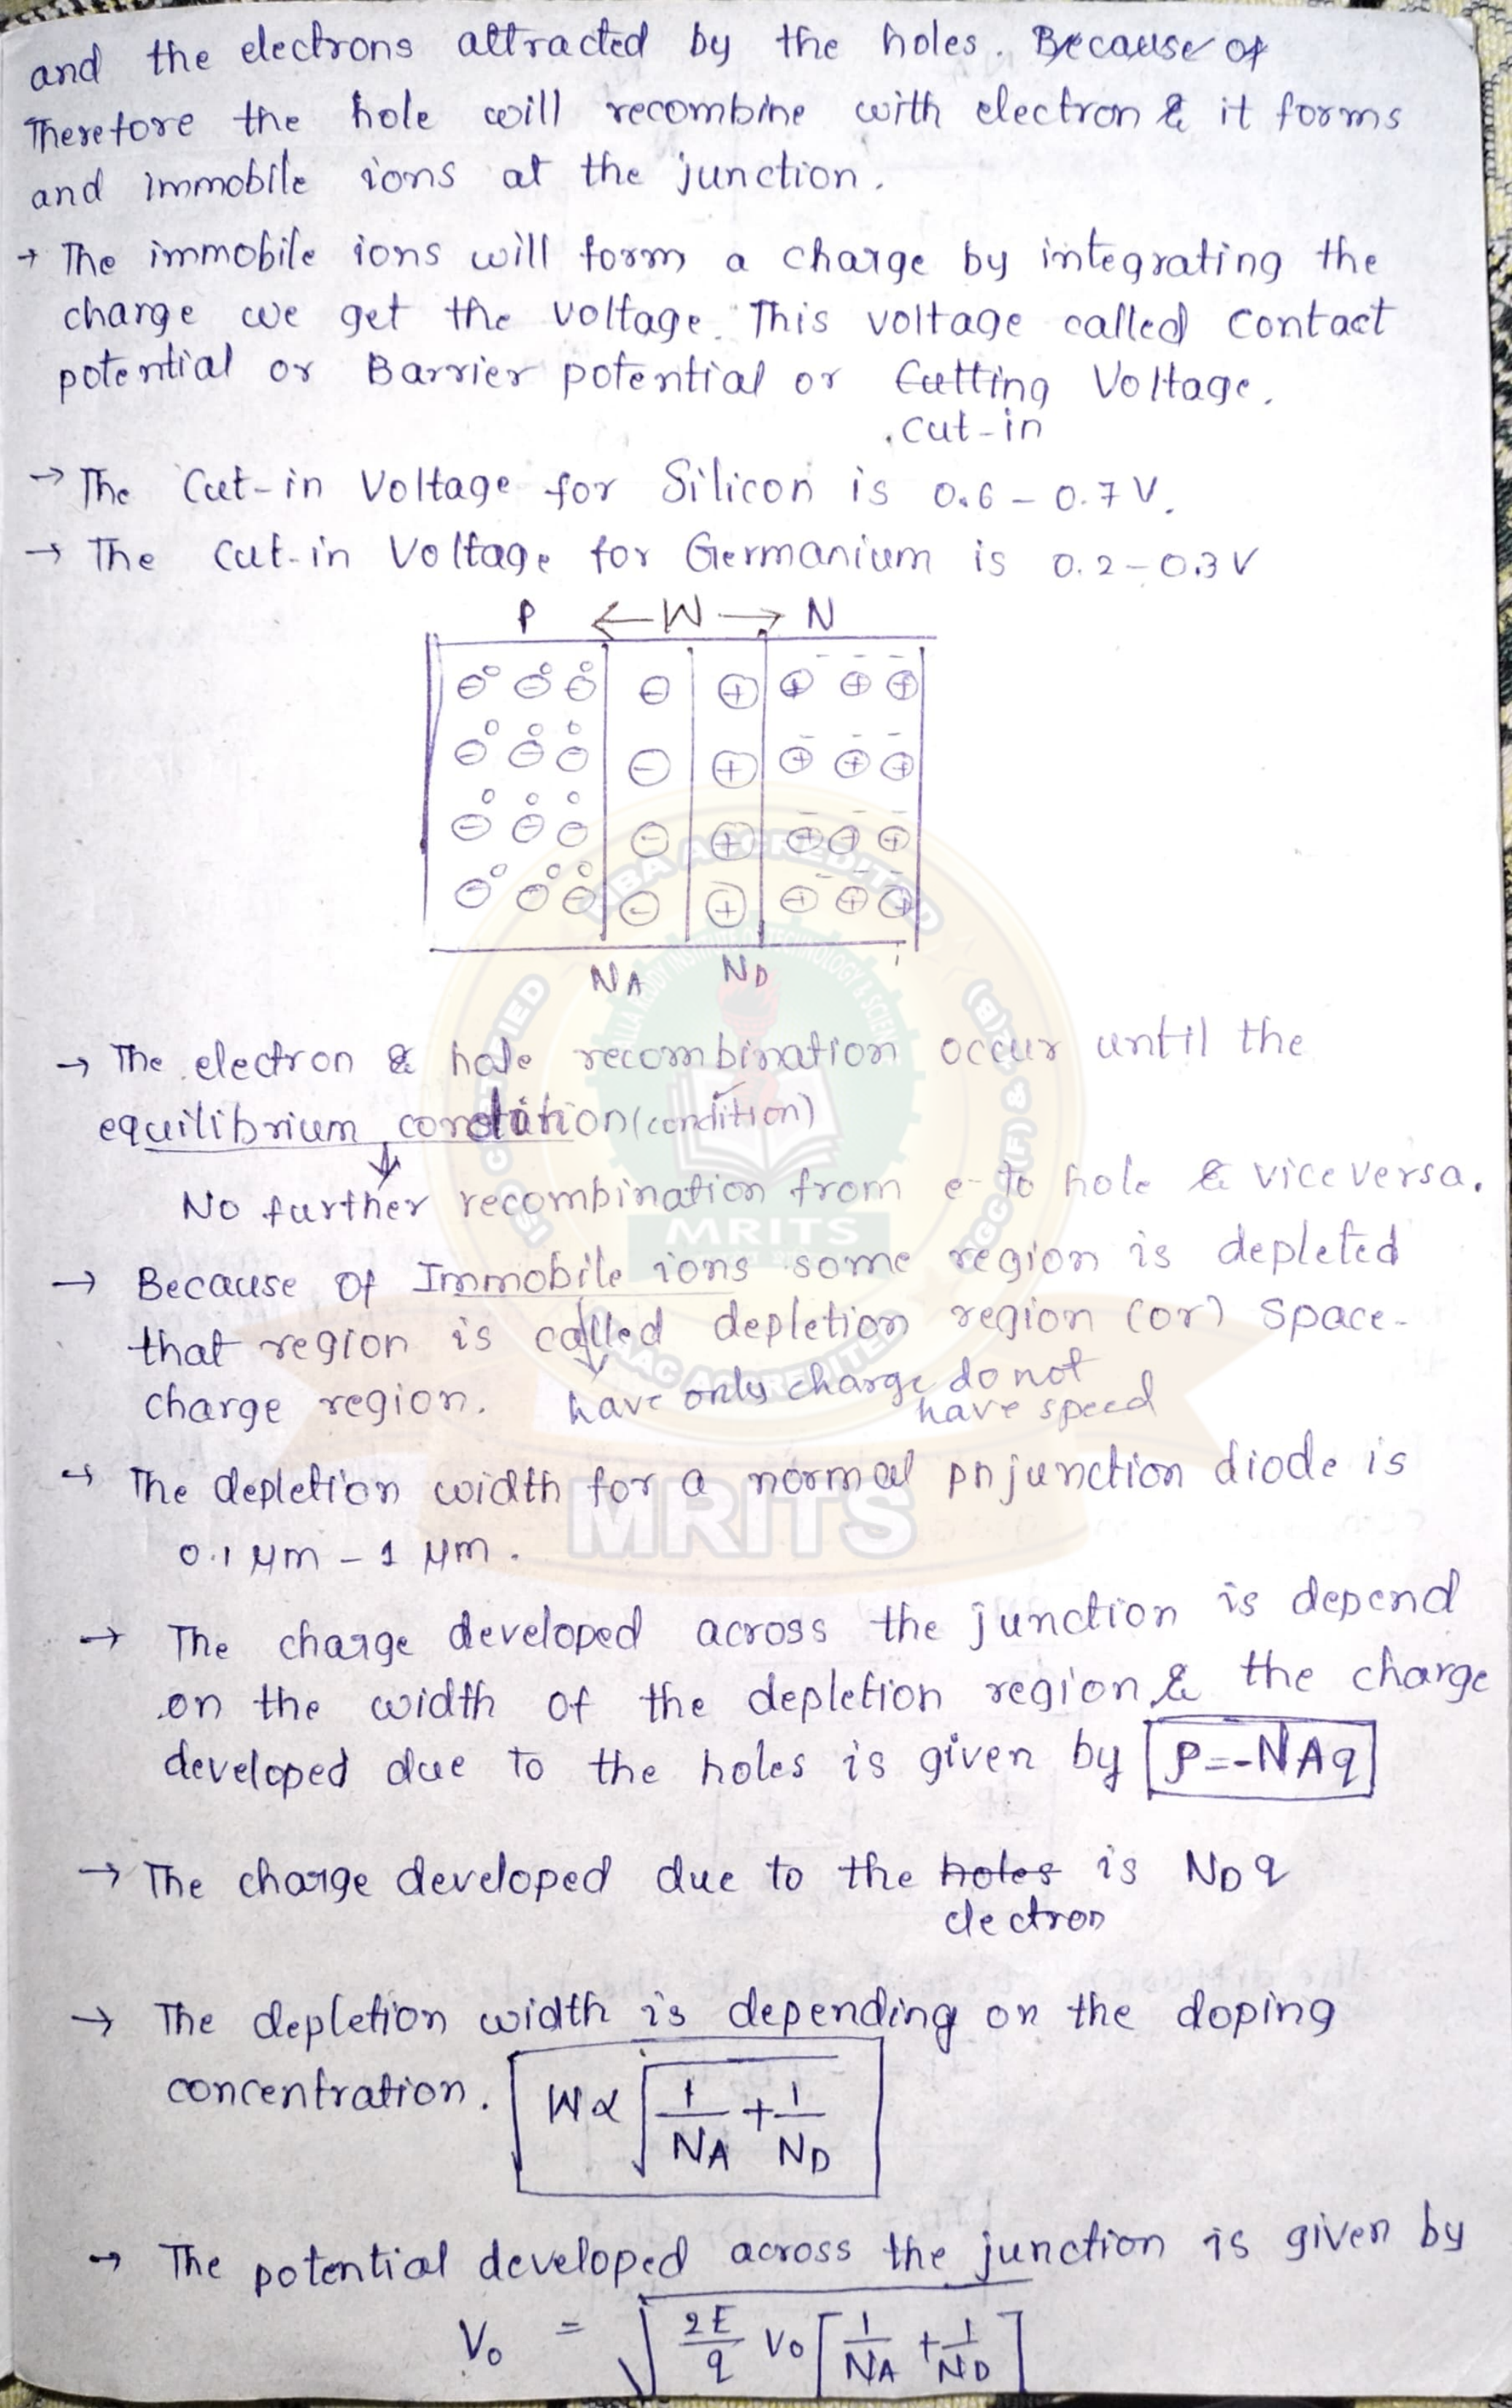 and the electrons attracted by the holes. Because of
Therefore the hole will recombine with electron & it forms
and immobile ions at the junction.
→ The immobile ions will form a charge by integrating the
charge we get the voltage. This voltage called Contact
potential or Barrier potential or Cutting Voltage.
cut-in
→ The Cut-in Voltage for Silicon is 0.6 - 0.7 V.
→ The Cut-in Voltage for Germanium is 0.2 - 0.3 V
P ← W → N
NA ND
→ The electron & hole recombination occur until the
equilibrium condition (condition)
↓
No further recombination from e- to hole & vice versa.
→ Because of Immobile ions some region is depleted
that region is called depletion region (or) Space-
charge region. have only charge do not
have speed
→ The depletion width for a normal pn junction diode is
0.1 μm - 1 μm.
→ The charge developed across the junction is depend
on the width of the depletion region & the charge
developed due to the holes is given by ρ=-NAq
→ The charge developed due to the holes is NDq
electron
→ The depletion width is depending on the doping
concentration. W ∝ √ 1/NA + 1/ND
→ The potential developed across the junction is given by
V₀ = √ 2E/q V₀ [1/NA + 1/ND]
NBA ACCREDITED
MALLA REDDY INSTITUTE OF TECHNOLOGY & SCIENCE
UGC 2(F) & 12(B)
NAAC ACCREDITED
MRITS
MRITS